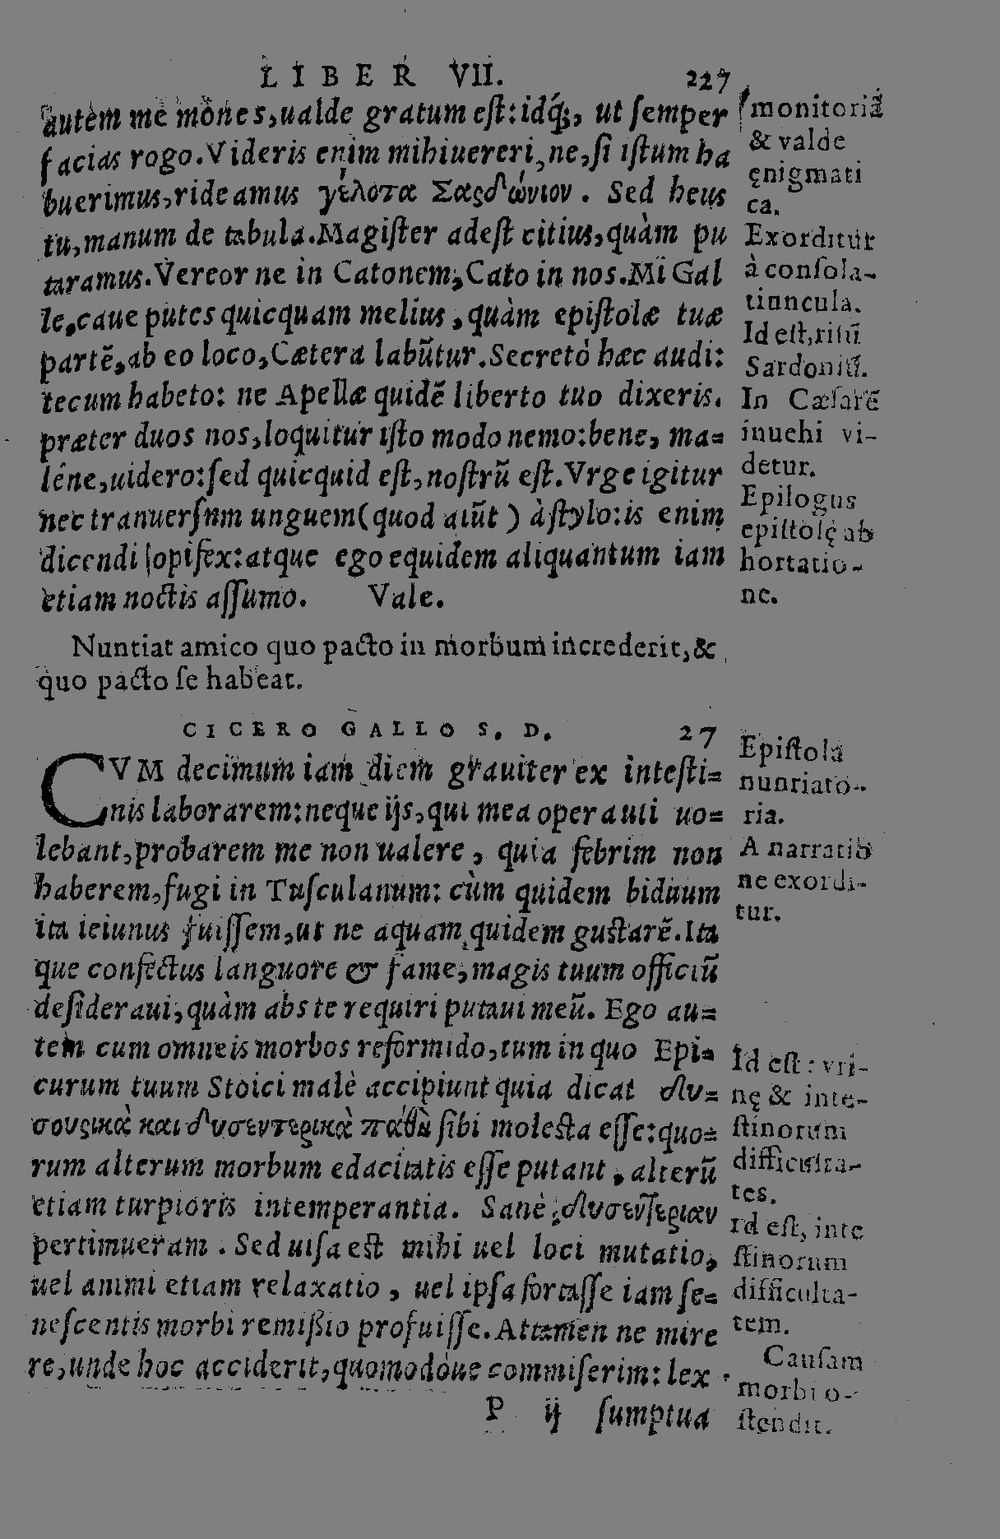 LIBER VII. 227
autem me mones, ualde gratum eſt: idq́;, ut ſemper
facias rogo. Videris enim mihi uereri, ne, ſi iſtum ha
buerimus, rideamus γέλοτα Σαρδώνιον. Sed heus
tu, manum de tabula. Magiſter adeſt citius, quàm pu
taramus. Vereor ne in Catonem, Cato in nos. Mi Gal
le, caue putes quicquam melius, quàm epiſtolæ tuæ
partẽ, ab eo loco, Cætera labũtur. Secretò hæc audi:
tecum habeto: ne Apellæ quidẽ liberto tuo dixeris.
præter duos nos, loquitur iſto modo nemo: bene, ma=
léne, uidero: ſed quicquid eſt, noſtrũ eſt. Vrge igitur
nec tranuerſum unguem (quod aiũt) à ſtylo: is enim
dicendi opifex: atque ego equidem aliquantum iam
etiam noctis aſſumo. Vale.
Nuntiat amico quo pacto in morbum increderit, &
quo pacto ſe habeat.
CICERO GALLO S. D. 27
CVM decimum iam diem grauiter ex inteſti=
nis laborarem: neque ijs, qui mea opera uti uo=
lebant, probarem me non ualere, quia febrim non
haberem, fugi in Tuſculanum: cùm quidem biduum
ita ieiunus fuiſſem, ut ne aquam quidem guſtarẽ. Ita
que confectus languore & fame, magis tuum officiũ
deſideraui, quàm abs te requiri putaui meũ. Ego au=
tem cum omneis morbos reformido, tum in quo Epi=
curum tuum Stoici malè accipiunt quia dicat δυ=
σουρικὰ και δυσεντερικὰ πάθη ſibi moleſta eſſe: quo=
rum alterum morbum edacitatis eſſe putant, alterũ
etiam turpioris intemperantia. Sanè δυσεντερίαν
pertimueram. Sed uiſa eſt mihi uel loci mutatio,
uel animi etiam relaxatio, uel ipſa fortaſſe iam ſe=
neſcentis morbi remiſsio profuiſſe. Attamen ne mire
re, unde hoc acciderit, quomodóue commiſerim: lex
P ij ſumptua
monitoriã
& valde
ęnigmati
ca.
Exorditur
à conſola-
tiuncula.
Id eſt, riſũ
Sardoniũ.
In Cæſarẽ
inuehi vi-
detur.
Epilogus
epiſtolę ab
hortatio-
ne.
Epiſtola
nunriato-
ria.
A narratio
ne exordi-
tur.
Id eſt: vri-
nę & inte-
ſtinorum
difficulta-
tes.
Id eſt, inte
ſtinorum
difficulta-
tem.
Cauſam
morbi o-
ſtendit.